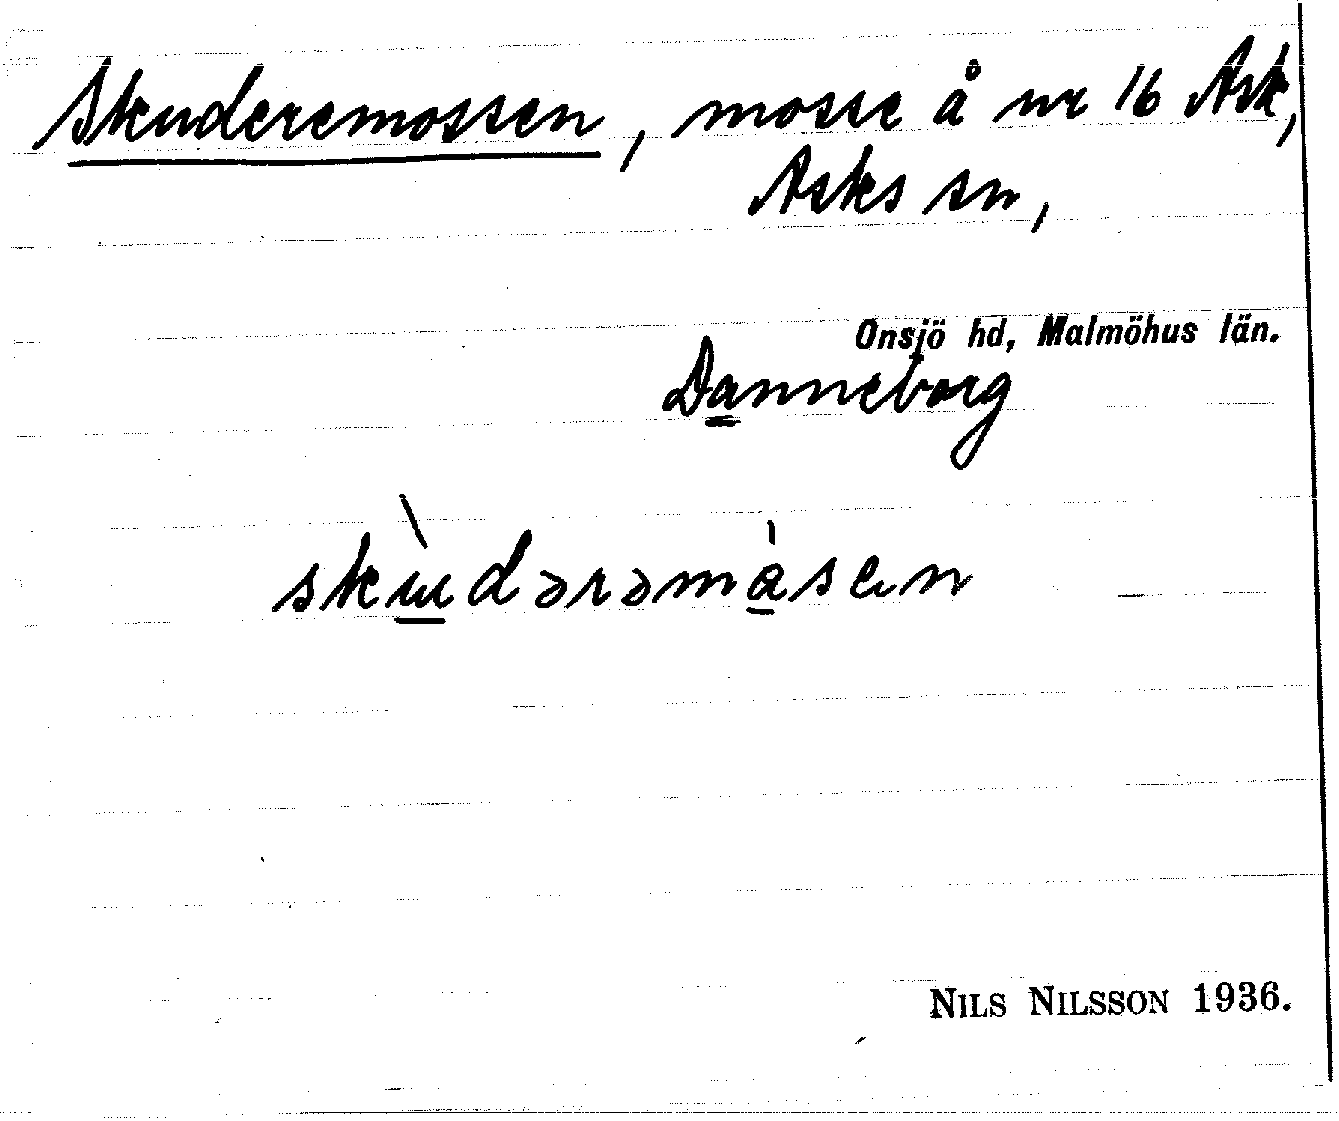 Skuderemossen, mosse å nr 16 Ask,
Asks sn,
Onsjö hd, Malmöhus län.
Danneborg
skɯ̀dərəmàsɐn
NILS NILSSON 1936.